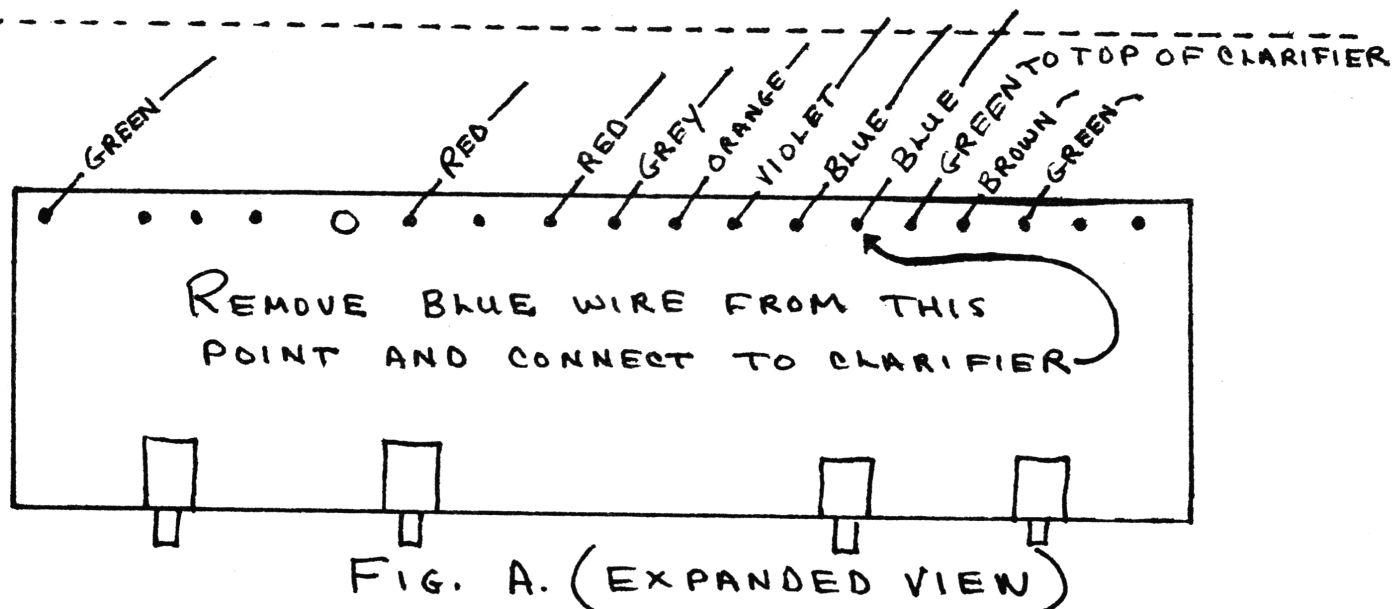 GREEN
RED
RED
GREY
ORANGE
VIOLET
BLUE
BLUE
GREEN TO TOP OF CLARIFIER
BROWN
GREEN
REMOVE BLUE WIRE FROM THIS
POINT AND CONNECT TO CLARIFIER
FIG. A. (EXPANDED VIEW)